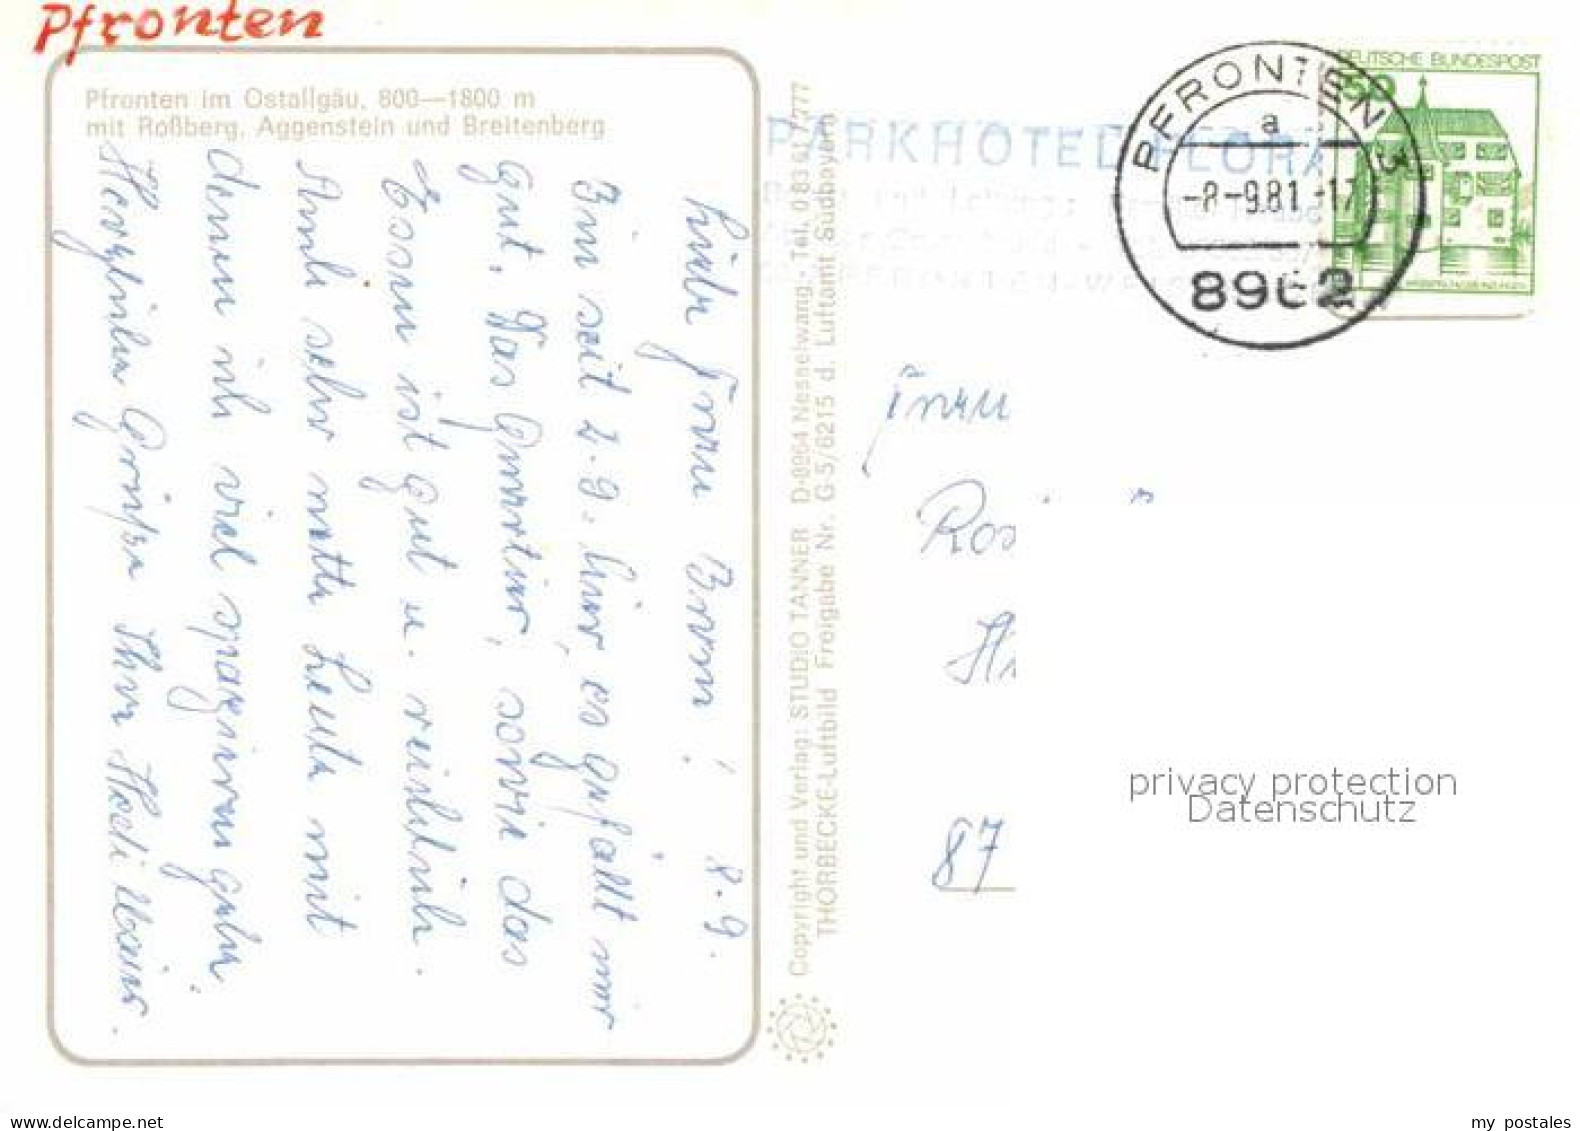 Pfronten
Pfronten im Ostallgäu, 800—1800 m
mit Roßberg, Aggenstein und Breitenberg
8.9.
Liebe Frau Braun!
Bin seit 2.9. hier, es gefällt mir
gut. Das Quartier, sowie das
Essen ist gut u. reichlich.
Auch sehr nette Leute mit
denen ich viel spazieren gehe.
Herzliche Grüße Ihre Hedi
Copyright und Verlag: STUDIO TANNER D-8964 Nesselwang - Tel. 08361/7777
THORBECKE-Luftbild Freigabe Nr. G 5/6215 d. Luftamt Südbayern
PARKHOTEL FLORA
PFRONTEN 3
a
-8-9.81-17
8962
DEUTSCHE BUNDESPOST
50
Frau
Ros
87
privacy protection
Datenschutz
www.delcampe.net
my postales